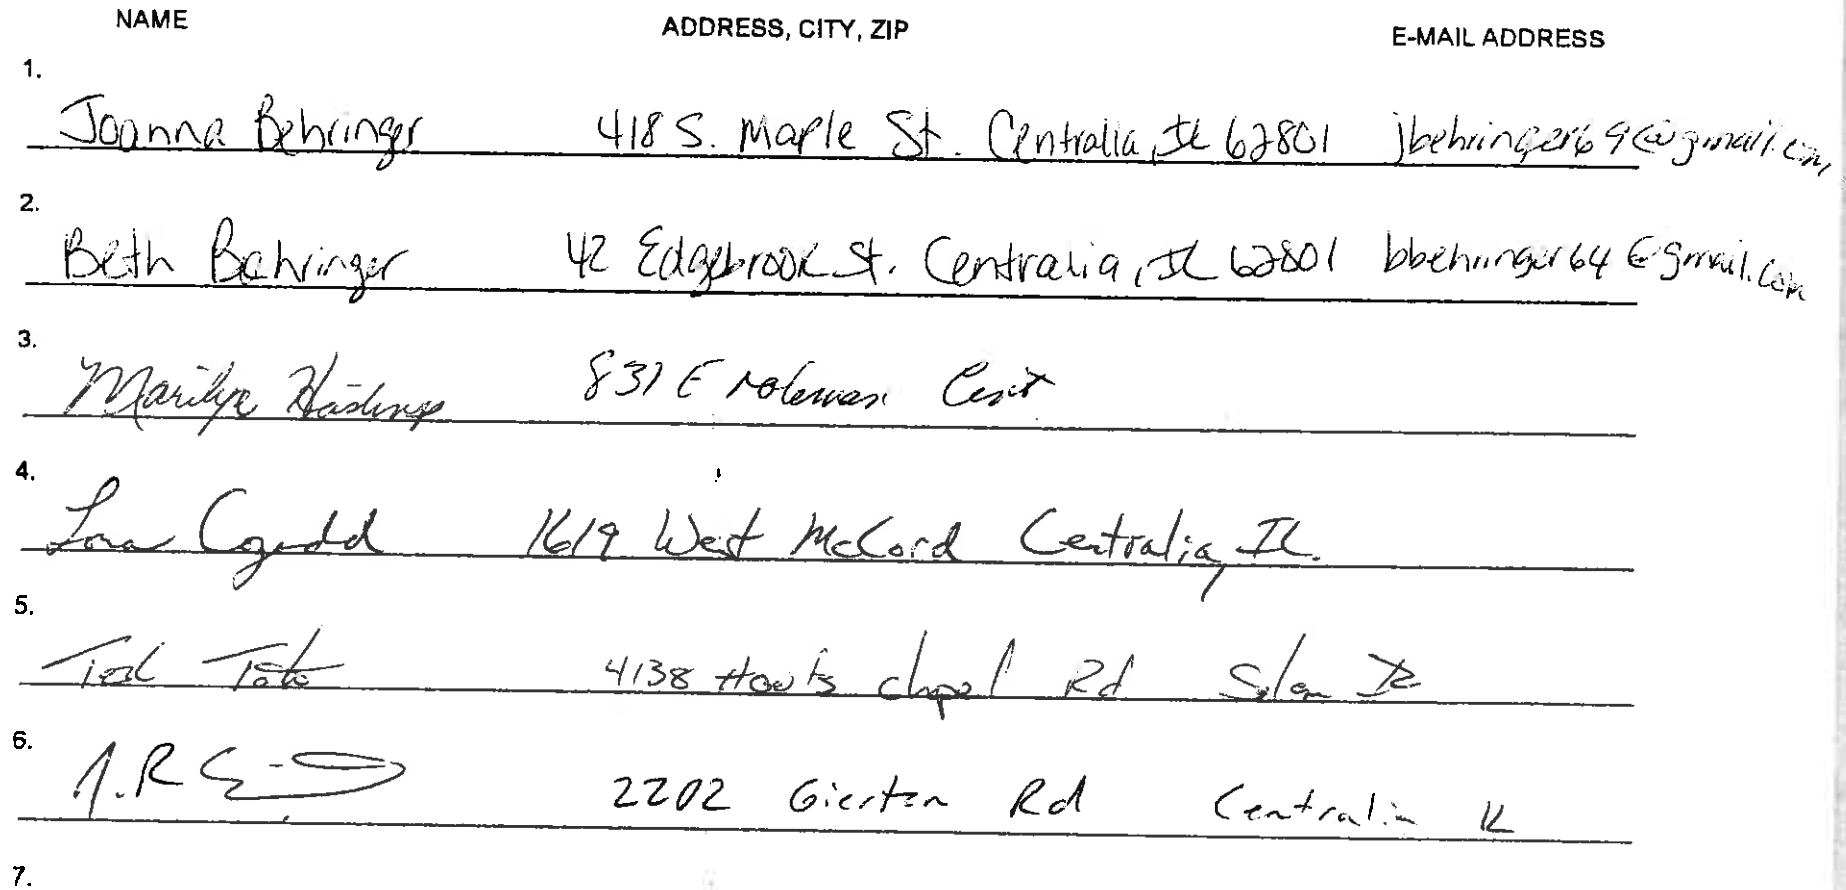 NAME ADDRESS, CITY, ZIP E-MAIL ADDRESS
1.
Joanna Behringer 418 S. Maple St. Centralia, IL 62801 jbehringer69@gmail.com
2.
Beth Behringer 42 Edgebrook St. Centralia, IL 62801 bbehringer64@gmail.com
3.
Marilyn Hastings 837 E Cent
4.
1619 West McCord Centralia, IL.
5.
4138 Houts chapel Rd Salem IL
6.
J.R 2202 Rd Centralia IL
7.